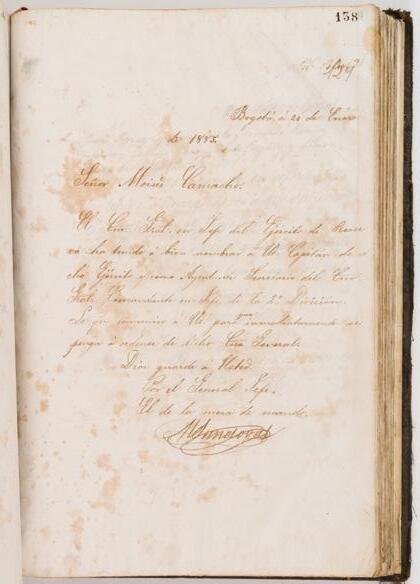 138
Bogotá, á 20 de Enero
de 1885.
Señor Moisés Camacho.
El Ciu. Gral. en Jefe del Ejército de
va ha tenido á bien nombrar á Ud. Capitán de
Ejército y como Ayud. en del Ciu.
Gral. Comandante en Jefe de la 2ª División.
Lo que comunico á Ud. para inmediatamente se
ponga á ordenes de dicho Ciu. General.
Dios guarde á Usted.
Por el General Jefe,
El de la mesa de mando.
MSandoval